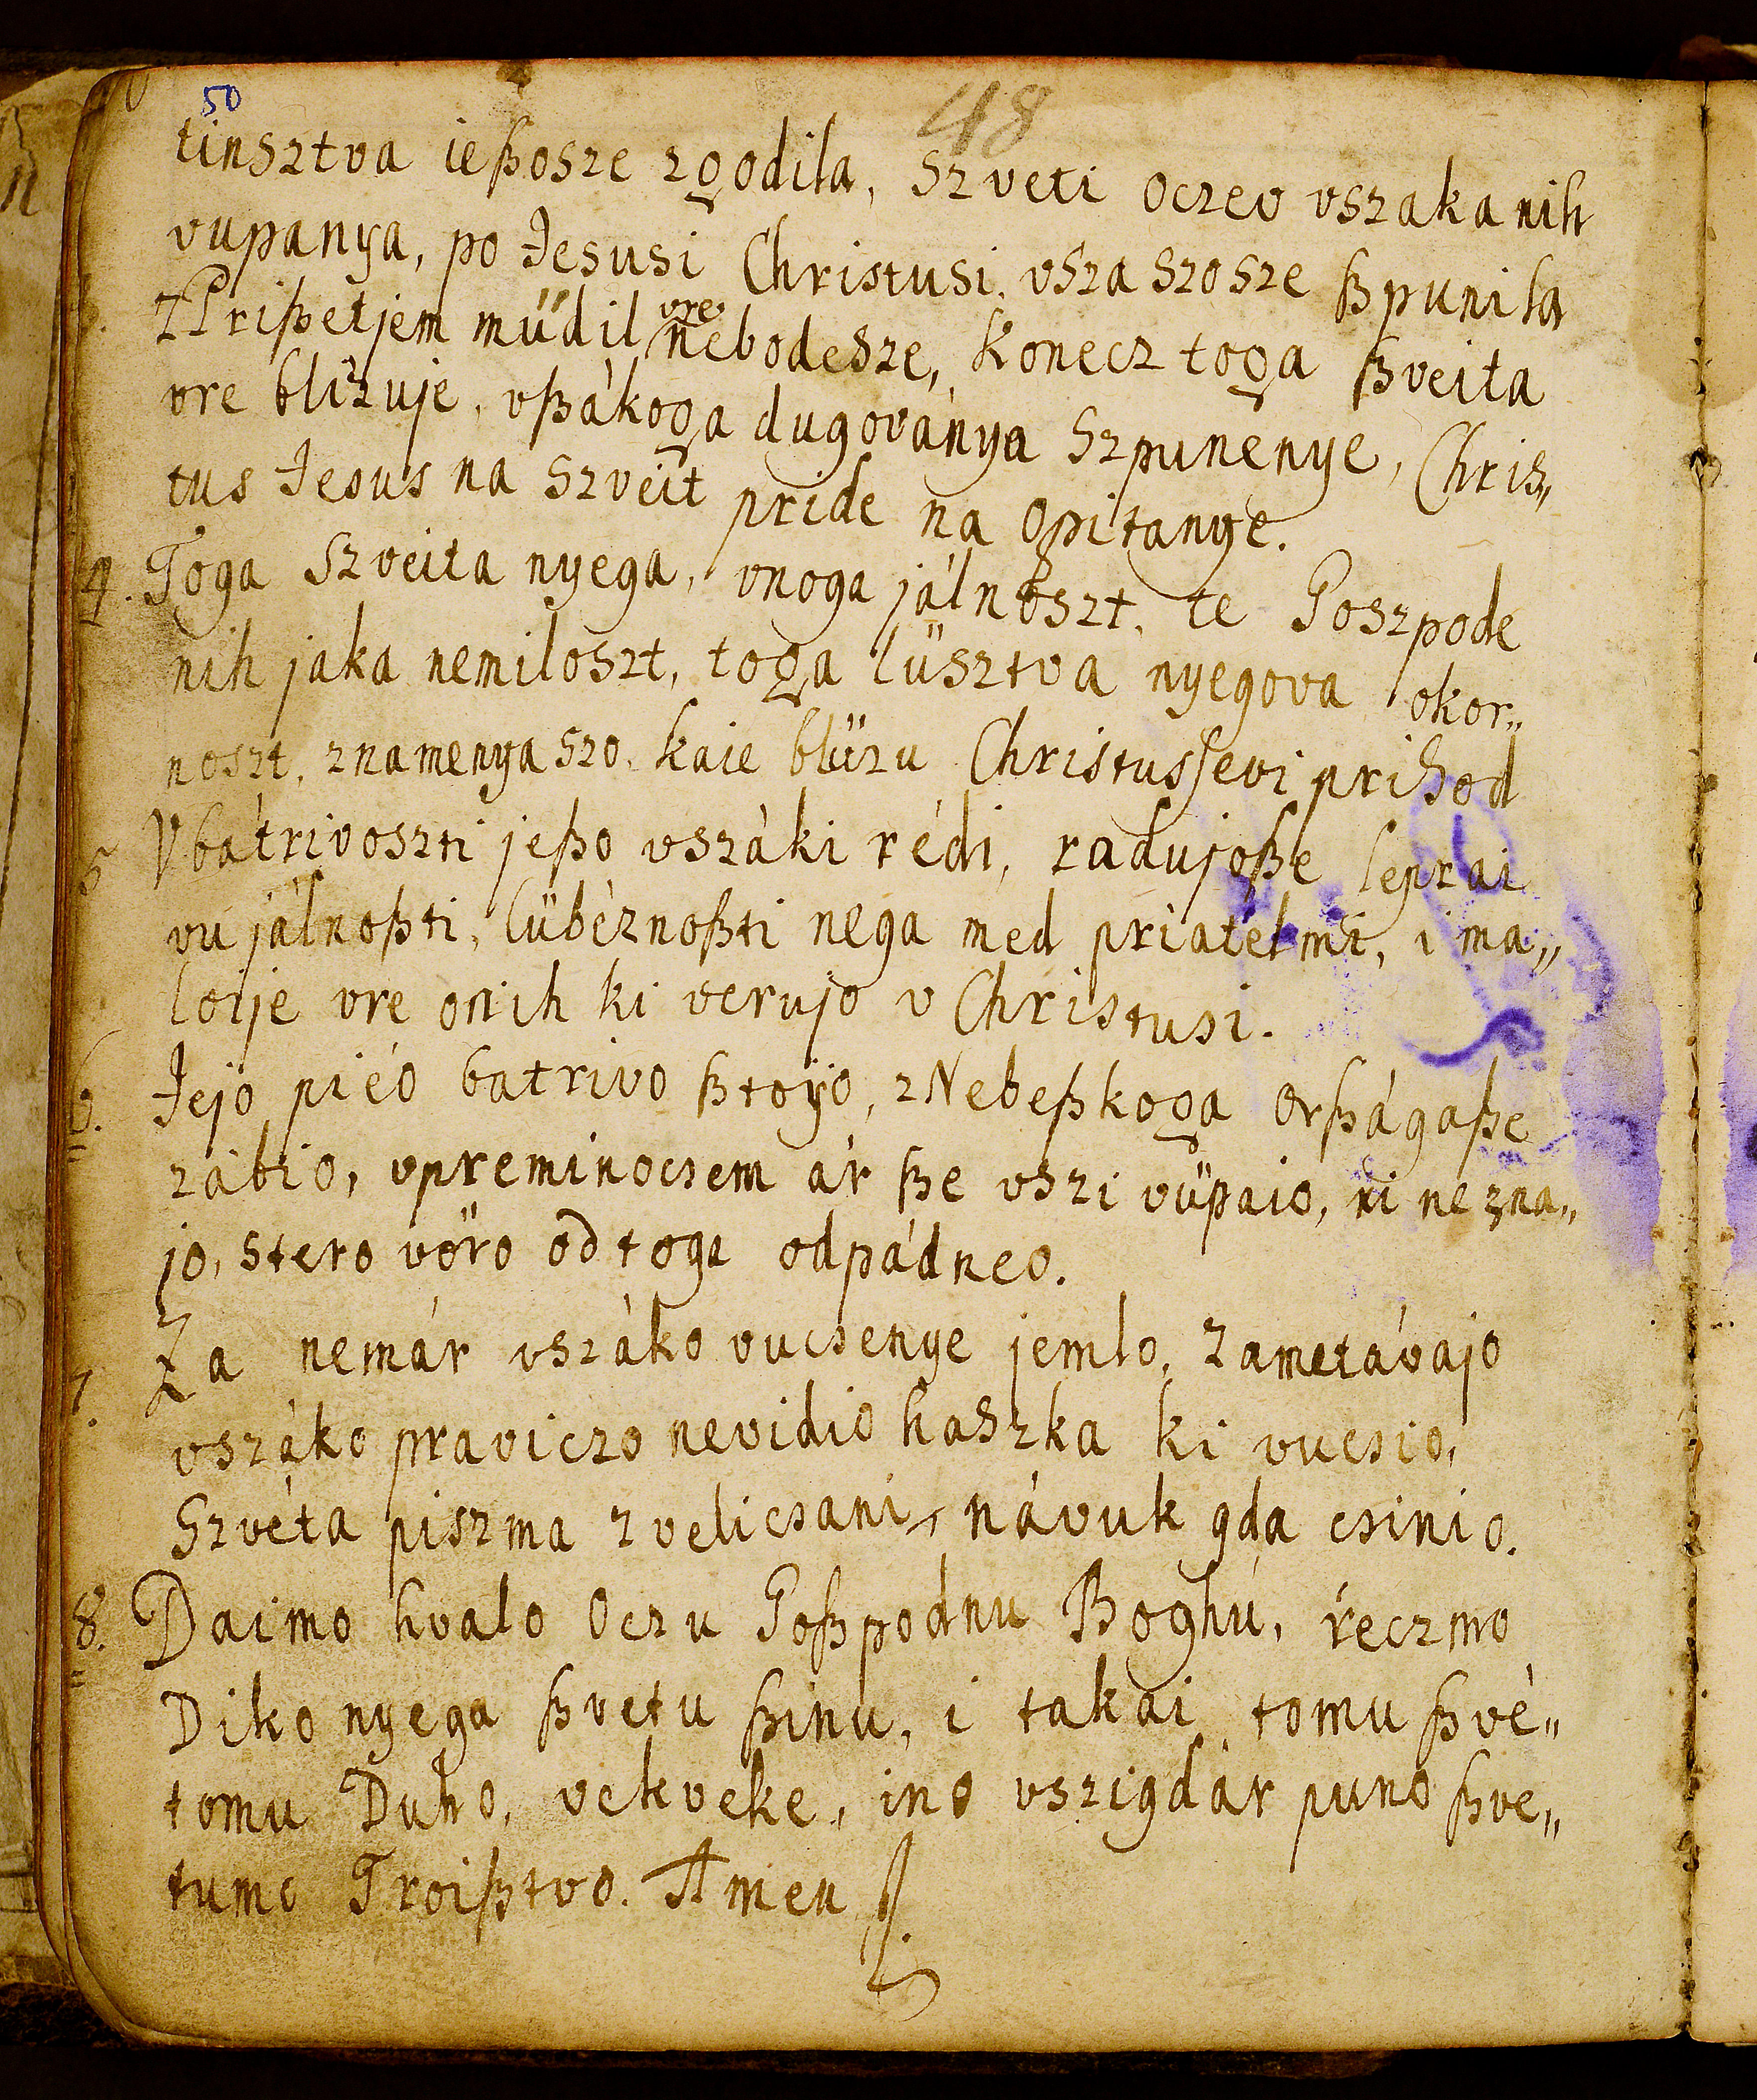 50
48
tinsztva ießosze zgodila, szveti oczev vszaka nih
vupanya, po Jesusi Christusi. vsza szosze ßpunila
3. ZPrißetjem müdil vre nebodesze, konecz toga ßveita
vre blizuje, vßákoga dugoványa szpunenye, Chris„
tus Jesus na szveit pride na opitanye.
4. Toga szveita nyega, vnoga jálnoszt, te Poszpode
nih jaka nemiloszt, toga lüsztva nyegova okor„
noszt, znamenya szo. kaie blüzu Christusſevi prihod
5 Vbátrivoszti jeßo vszáki rédi, radujoße lepzai
vu jálnoßti, lübéznoßti nega med priatelmi, i ma„
loije vre onih ki verujo v Christusi.
6. Jejo piéo batrivo ßtoÿo, zNebeßkoga Orßágaße
zábio, vpreminocsem ár ße vszi vüpaio, ni nezna„
jo, stero vöro od toga odpádneo.
7. Za nemár vszáko vucsenye jemlo, zametávajo
vszáko praviczo nevidio haszka ki vucsio,
Szvéta piszma zvelicsani, návuk gda csinio.
8. Daimo hvalo Oczu Goßpodnu Boghú, reczmo
Diko nyega ßvetu ßinu, i takai tomu ßvé„
tomu Duho, vekveke, ino vszigdár puno ßve„
tumo Troißtvo. Amen